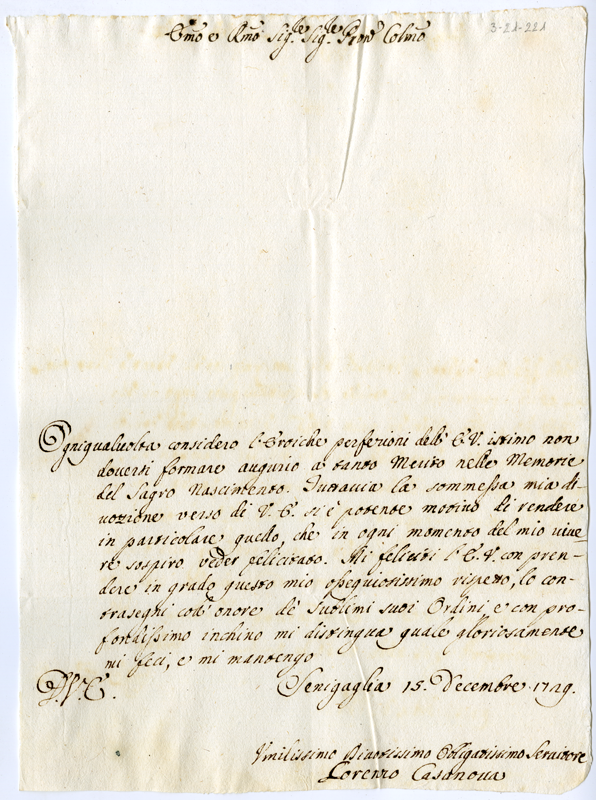 3-21-221
Emo e Rmo Sig.re Sig.re Pron Colmo
Ogniqualuolta considero l'Eroiche perfezioni dell' E.V. istimo non
douersi formare augurio a tanto Merito nelle Memorie
del Sagro Nascimento. Tuttauia la sommessa mia di-
uozione verso di V.E. si è potente motiuo di rendere
in particolare quello, che in ogni momento del mio viue
re sospiro veder felicitato. Mi feliciti l'E.V. con pren-
dere in grado questo mio ossequiosissimo rispetto, lo con-
trasegni coll' onore dè Sublimi suoi Ordini, e con pro-
fondissimo inchino mi distingua quale gloriosamente
mi feci, e mi mantengo
D.V.E. Senigaglia 15. Decembre 1729.
Vmilissimo Diuotissimo Obligatissimo Seruitore
Lorenzo Casanoua